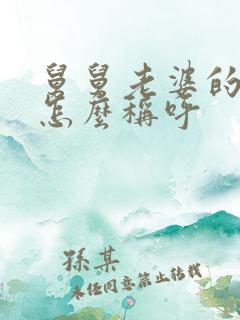 舅舅老婆的
怎麼稱呼
孫某
未经同意禁止转载